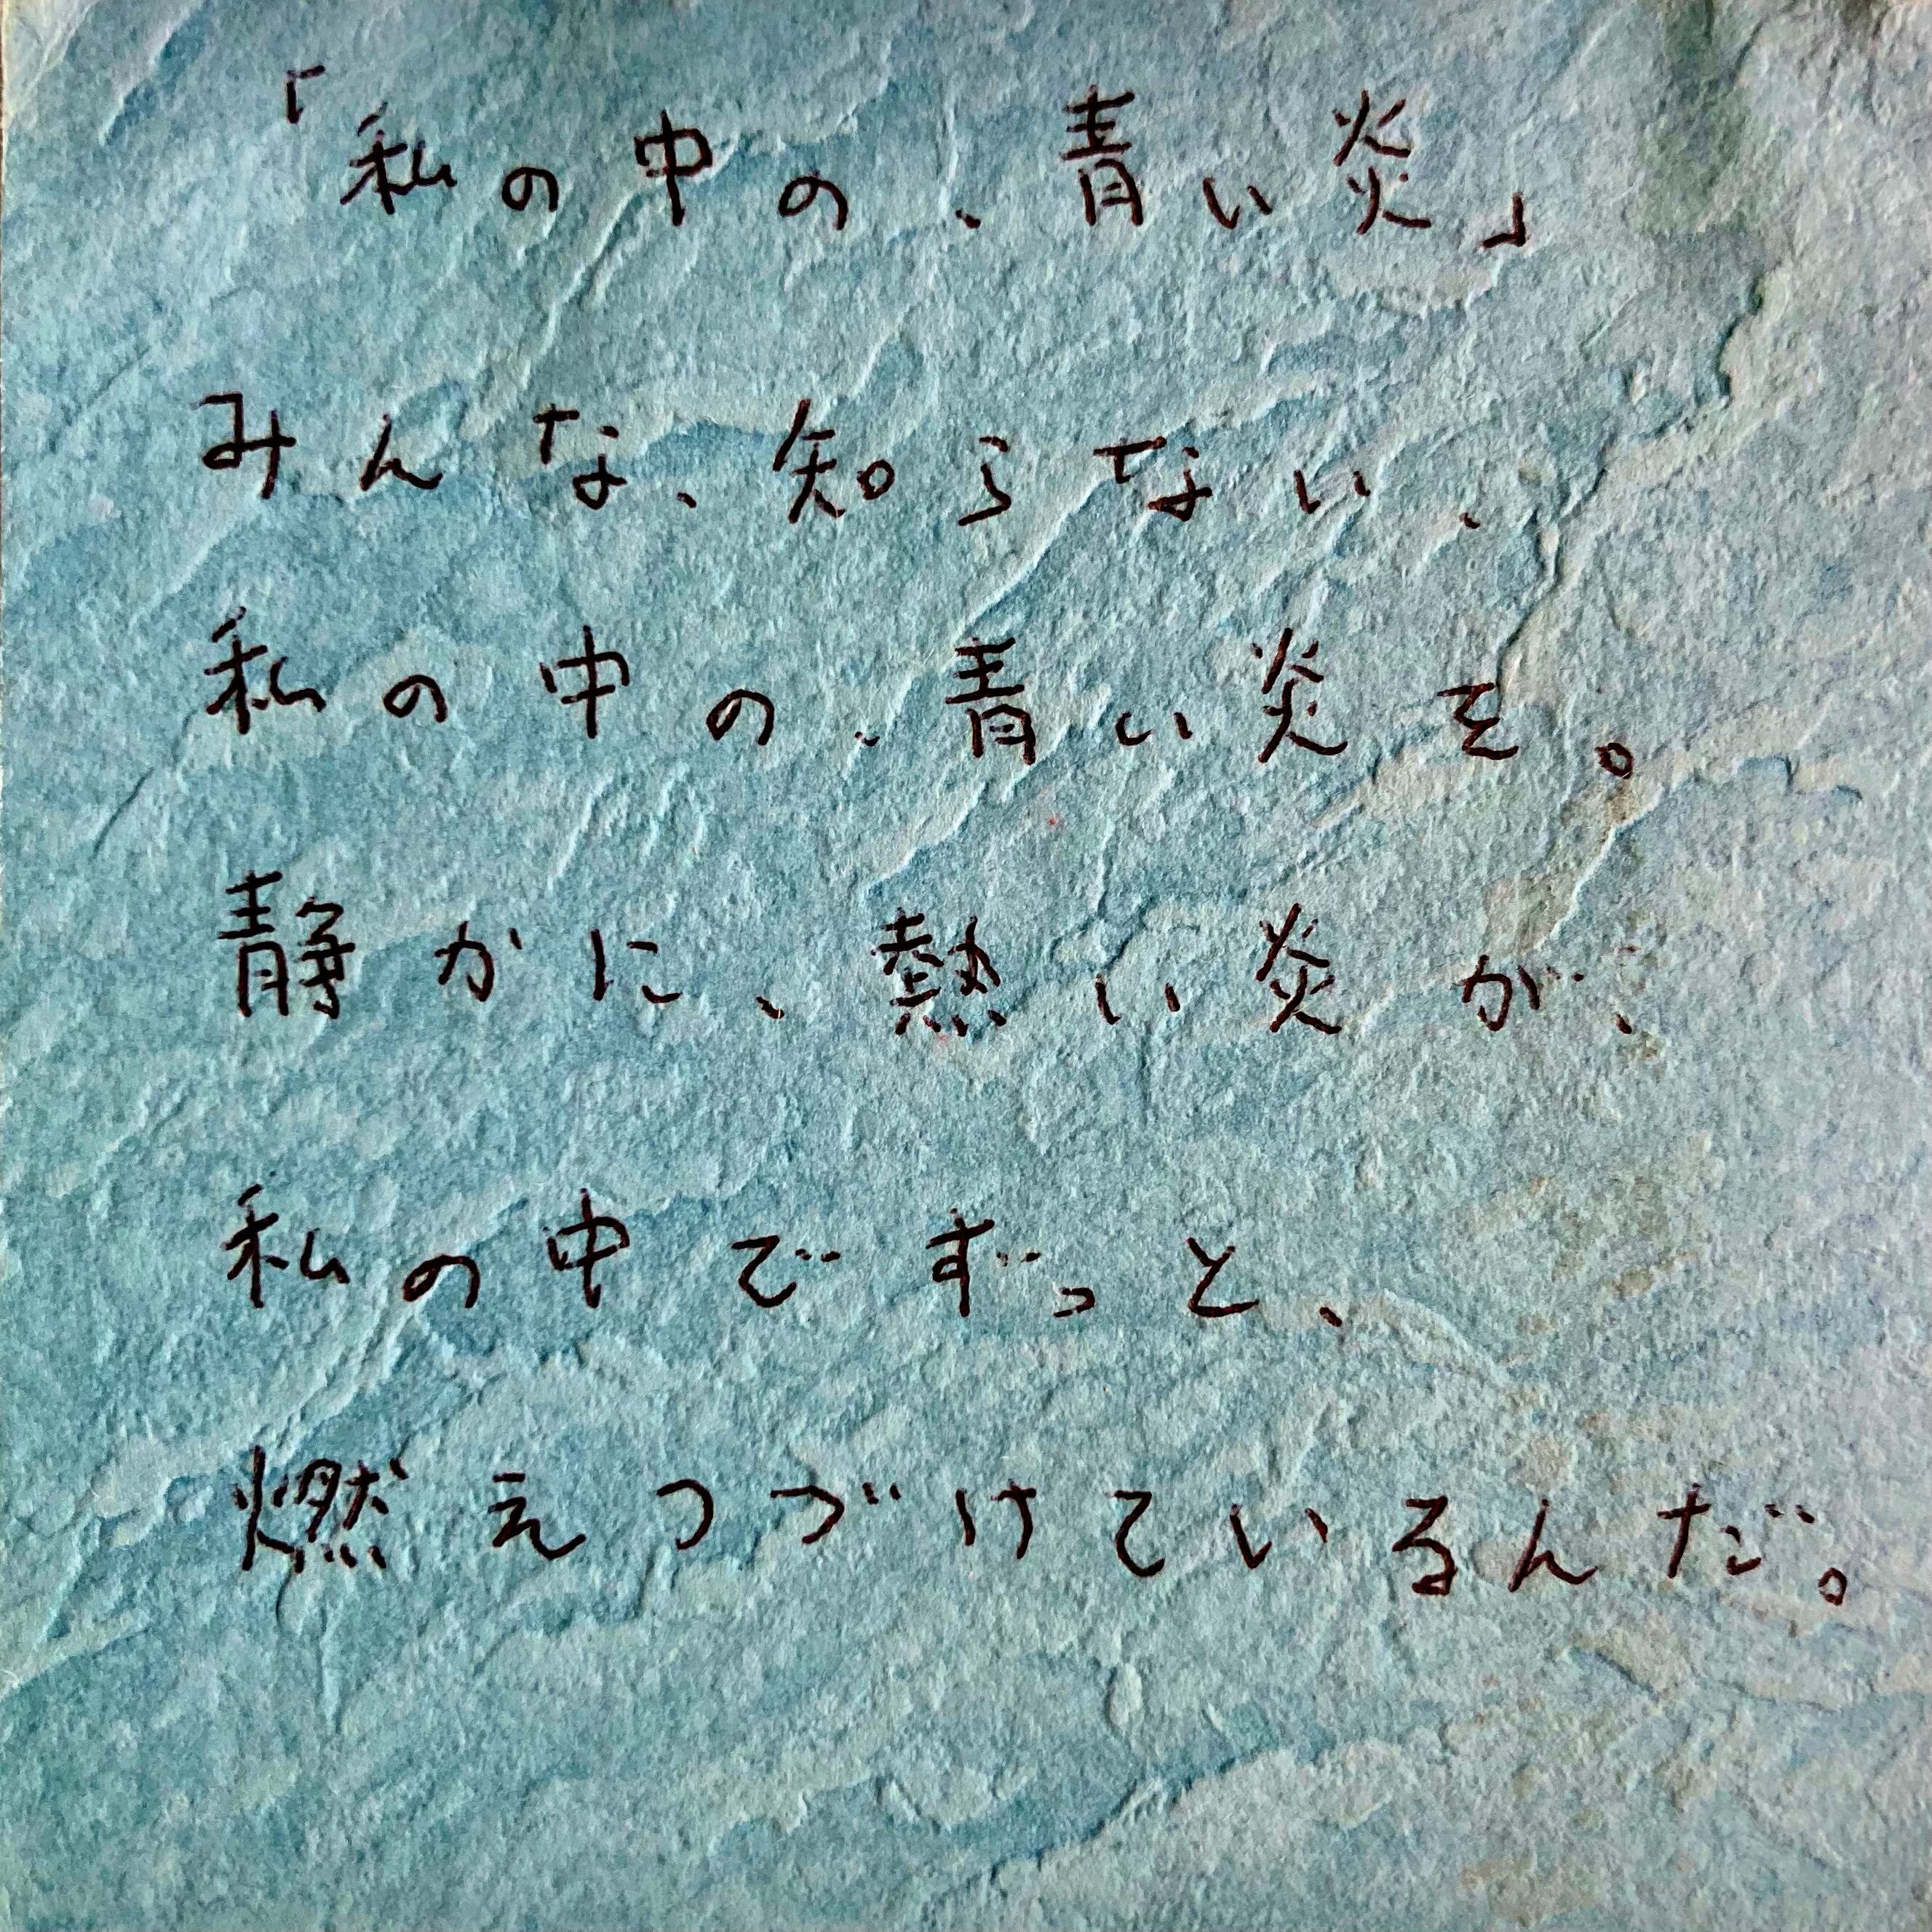 「私の中の、青い炎」
みんな、知らない、
私の中の、青い炎を。
静かに、熱い炎が、
私の中でずっと、
燃えつづけているんだ。